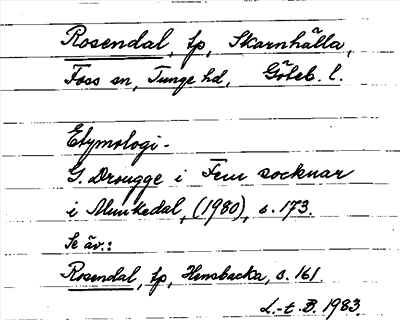 Rosendal, lp, Skarnhälla,
Foss sn, Tunge hd, Göteb. l.
Etymologi -
G. Drougge i Fem socknar
i Munkedal, (1980), s. 173.
Se äv.:
Rosendal, lp, Hensbacka, s. 161.
L.-t. B. 1983.